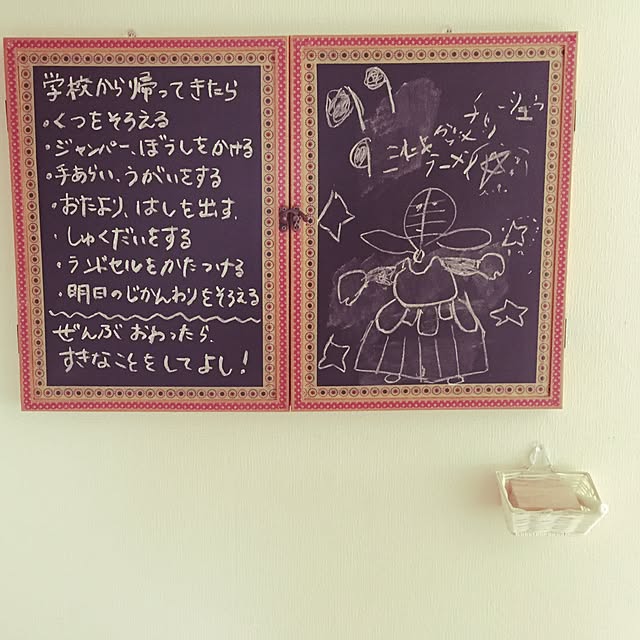 学校から帰ってきたら
・くつをそろえる
・ジャンパー、ぼうしをかける
・手あらい、うがいをする
・おたより、はしを出す。
・しゅくだいをする
・ランドセルをかたづける
・明日のじかんわりをそろえる
ぜんぶおわったら、
すきなことをしてよし!